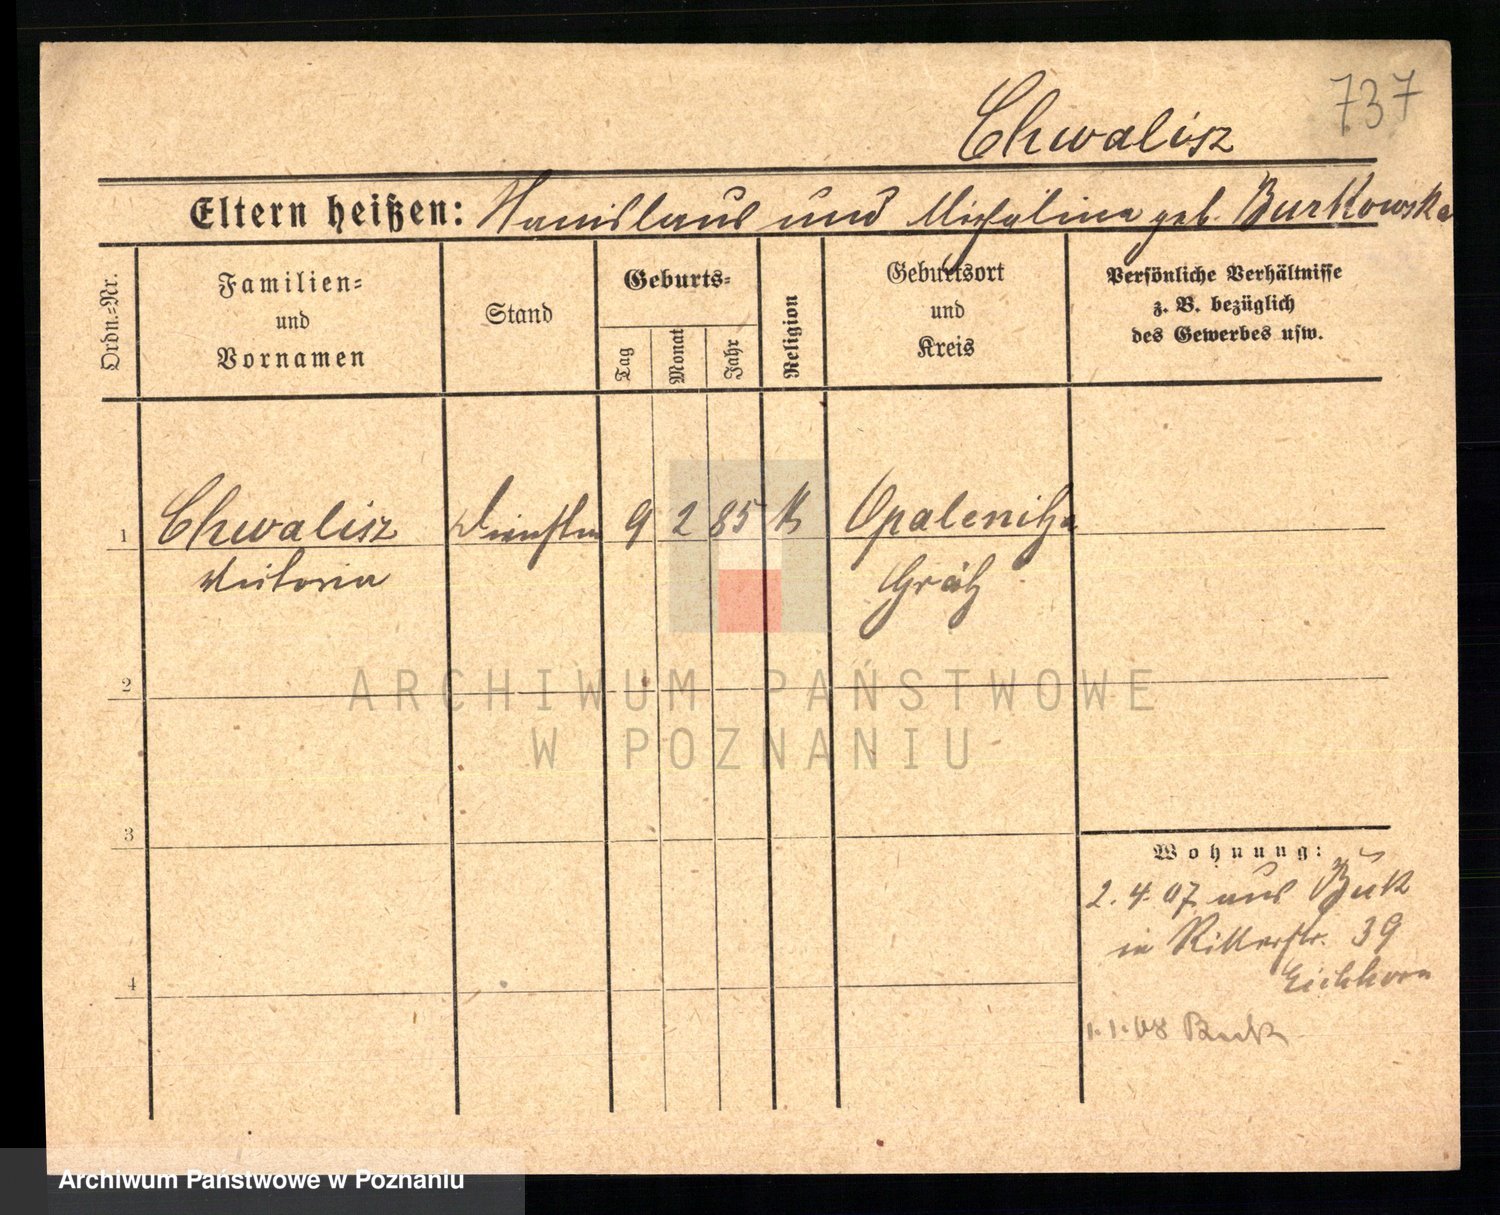 737
Chwalisz
Eltern heißen: Stanislaus und Michalina geb. Burkowska
Ordn.-Nr.
Familien-
und
Vornamen
Stand
Geburts-
Tag
Monat
Jahr
Religion
Geburtsort
und
Kreis
Persönliche Verhältnisse
z. B. bezüglich
des Gewerbes usw.
1 Chwalisz 9 2 85 k Opalenitza
Victoria Grätz
2
3
4
Wohnung:
2.4.07 aus Buk
in Ritterstr. 39
Eichhorn
1.1.08
ARCHIWUM PAŃSTWOWE
W POZNANIU
Archiwum Państwowe w Poznaniu